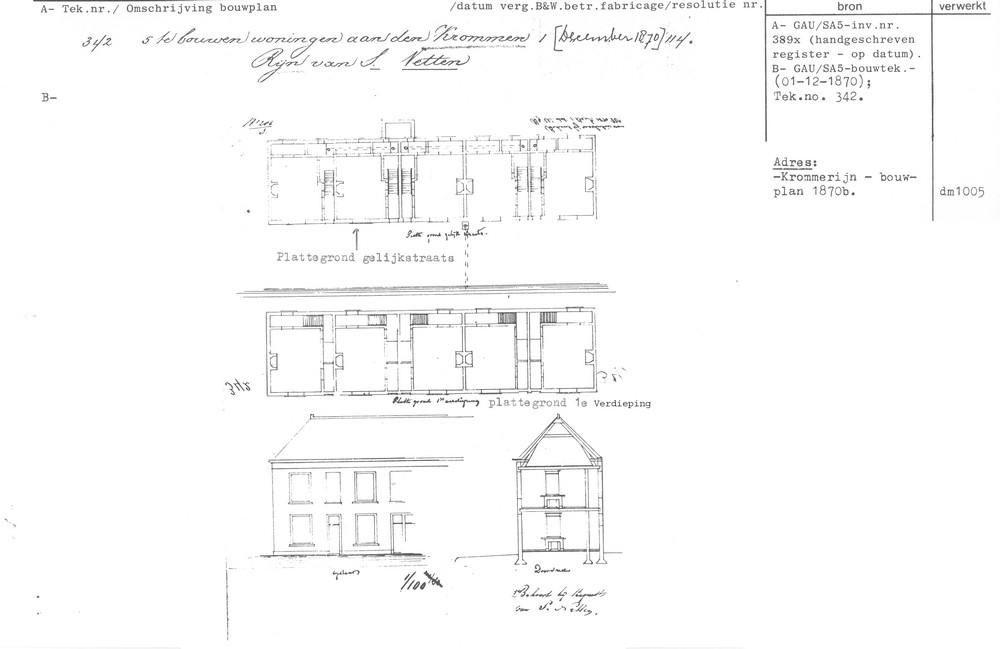 A- Tek.nr./ Omschrijving bouwplan /datum verg.B&W.betr.fabricage/resolutie nr. bron verwerkt
342 5 te bouwen woningen aan den Krommen 1 [December 1870] 114.
Rijn van S. Netten
A- GAU/SA5-inv.nr.
389x (handgeschreven
register - op datum).
B- GAU/SA5-bouwtek.-
(01-12-1870);
Tek.no. 342.
B-
Adres:
-Krommerijn - bouw-
plan 1870b.
dm1005
Platte grond gelijk straats.
Plattegrond gelijkstraats
342
Platte grond 1e verdieping plattegrond 1e Verdieping
1/100
Doorsnede
Behoort bij Request
van S. Netten